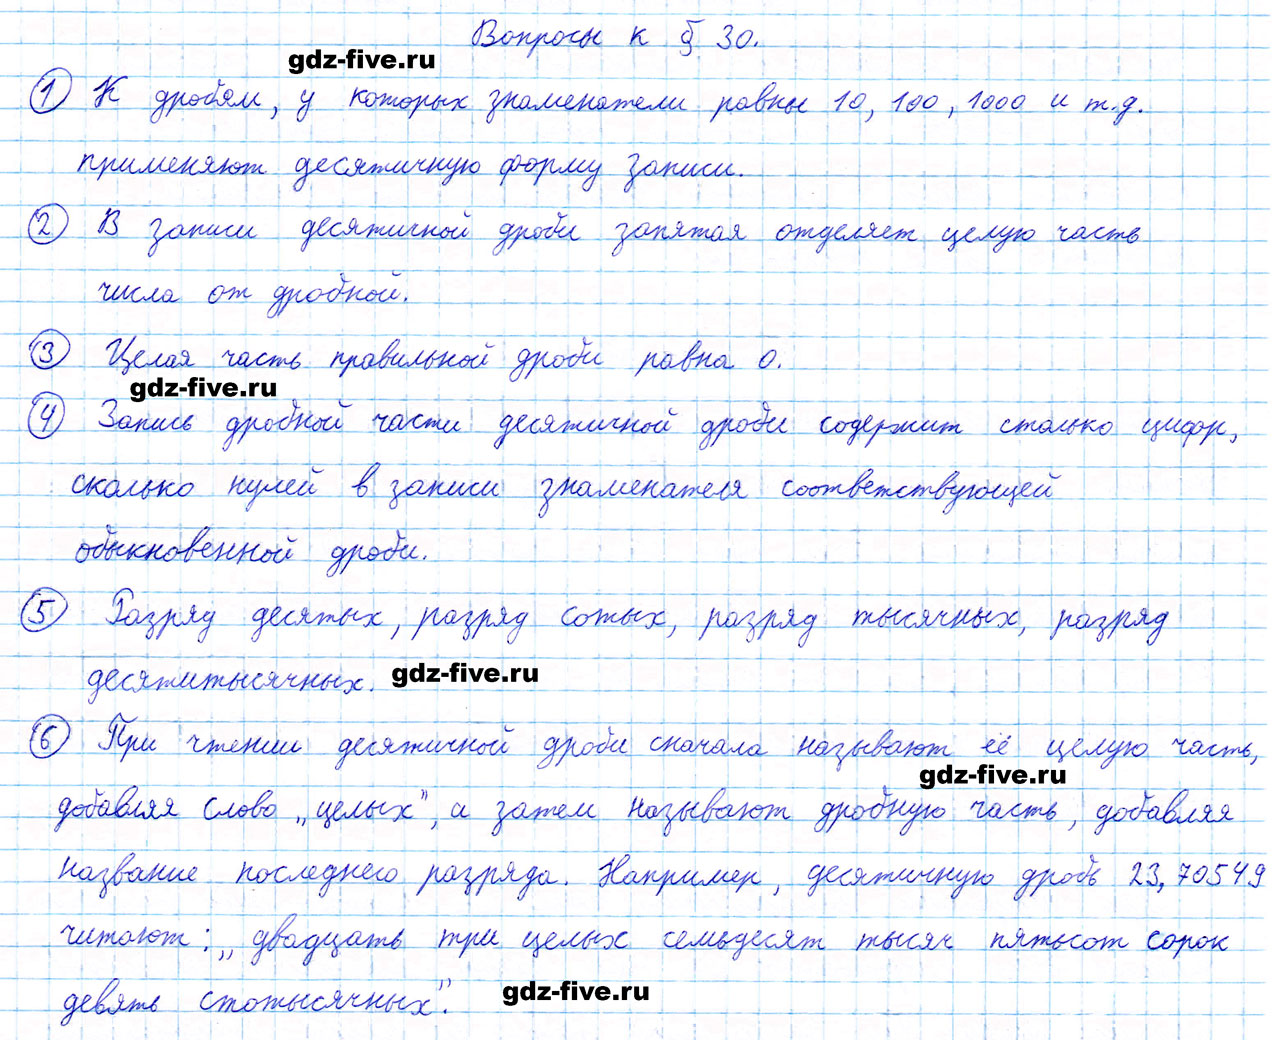 Вопросы к § 30.
gdz-five.ru
① К дробям, у которых знаменатели равны 10, 100, 1000 и т.д.
применяют десятичную форму записи.
② В записи десятичной дроби запятая отделяет целую часть
числа от дробной.
③ Целая часть правильной дроби равна 0.
gdz-five.ru
④ Запись дробной части десятичной дроби содержит столько цифр,
сколько нулей в записи знаменателя соответствующей
обыкновенной дроби.
⑤ Разряд десятых, разряд сотых, разряд тысячных, разряд
десятитысячных. gdz-five.ru
⑥ При чтении десятичной дроби сначала называют её целую часть,
gdz-five.ru
добавляя слово „целых", а затем называют дробную часть, добавляя
название последнего разряда. Например, десятичную дробь 23,70549
читают: „двадцать три целых семьдесят тысяч пятьсот сорок
девять стотысячных". gdz-five.ru